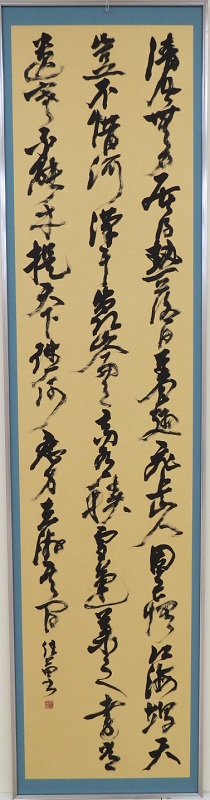 清風無力屠得熱落日着翅飛上山人固已懼江海竭天
豈不惜河漢干崑崙之高有積雪蓬萊之遠常
遺寒不能手提天下往何忍身去游其間